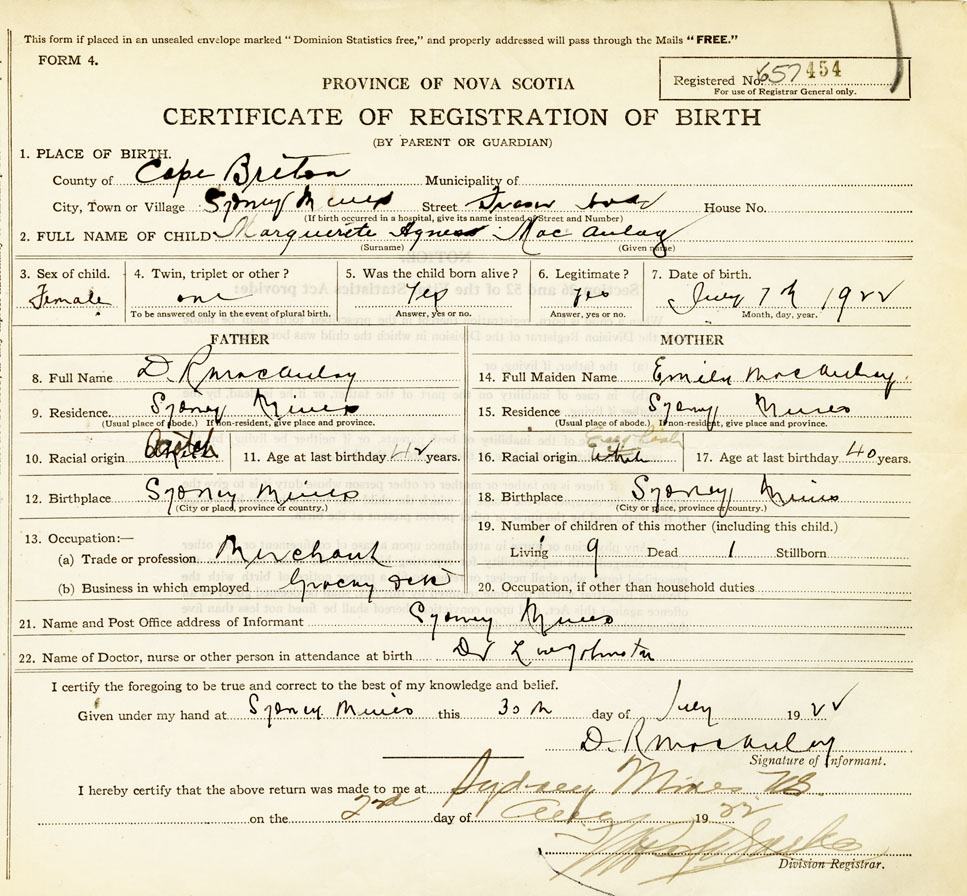 This form if placed in an unsealed envelope marked "Dominion Statistics free," and properly addressed will pass through the Mails "FREE."
FORM 4.
Registered No. 657454
For use of Registrar General only.
PROVINCE OF NOVA SCOTIA
CERTIFICATE OF REGISTRATION OF BIRTH
(BY PARENT OR GUARDIAN)
1. PLACE OF BIRTH.
County of Cape Breton Municipality of
City, Town or Village Sydney Mines Street Fraser House No.
(If birth occurred in a hospital, give its name instead of Street and Number)
2. FULL NAME OF CHILD Marguerete Agness Mac aulay
(Surname) (Given name)
3. Sex of child. 4. Twin, triplet or other? 5. Was the child born alive? 6. Legitimate? 7. Date of birth.
Female one Yes yes July 7th 1922
To be answered only in the event of plural birth. Answer, yes or no. Answer, yes or no. Month, day, year.
FATHER MOTHER
8. Full Name D. R macaulay 14. Full Maiden Name Emily macaulay
9. Residence. Sydney Mines 15. Residence Sydney Mines
(Usual place of abode.) If non-resident, give place and province. (Usual place of abode.) If non-resident, give place and province.
10. Racial origin 11. Age at last birthday 42 years. 16. Racial origin 17. Age at last birthday 40 years.
12. Birthplace Sydney Mines 18. Birthplace Sydney Mines
(City or place, province or country.) (City or place, province or country.)
13. Occupation:— 19. Number of children of this mother (including this child.)
(a) Trade or profession Merchant Living 9 Dead 1 Stillborn
(b) Business in which employed 20. Occupation, if other than household duties
21. Name and Post Office address of Informant Sydney Mines
22. Name of Doctor, nurse or other person in attendance at birth Dr Johnston
I certify the foregoing to be true and correct to the best of my knowledge and belief.
Given under my hand at Sydney Mines this 30th day of July 1922
D. R macaulay
Signature of Informant.
I hereby certify that the above return was made to me at Sydney Mines
on the 2nd day of Aug 1922
Division Registrar.